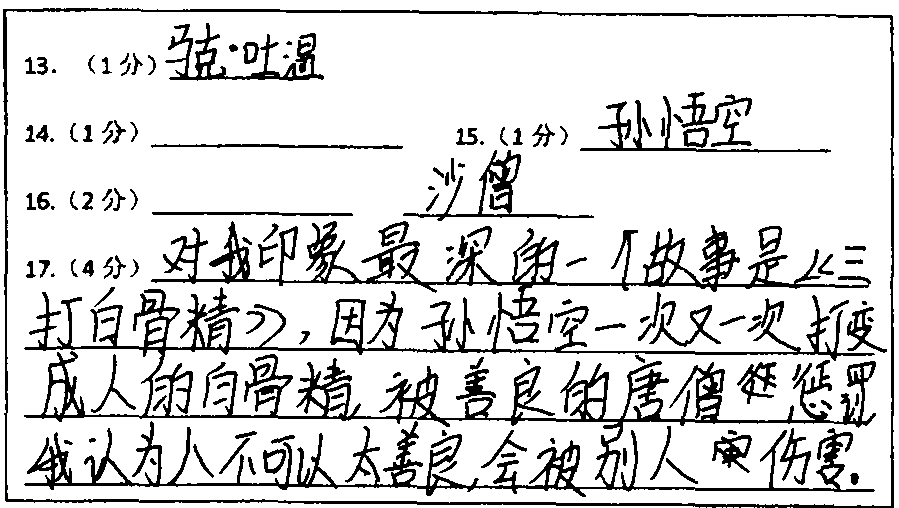 13. （1分）马克·吐温
14.（1分） 15.（1分） 孙悟空
16.（2分） 沙僧
17.（4分） 对我印象最深的一个故事是《三
打白骨精》，因为孙悟空一次又一次打变
成人的白骨精，被善良的唐僧惩罚
我认为人不可以太善良，会被别人伤害.